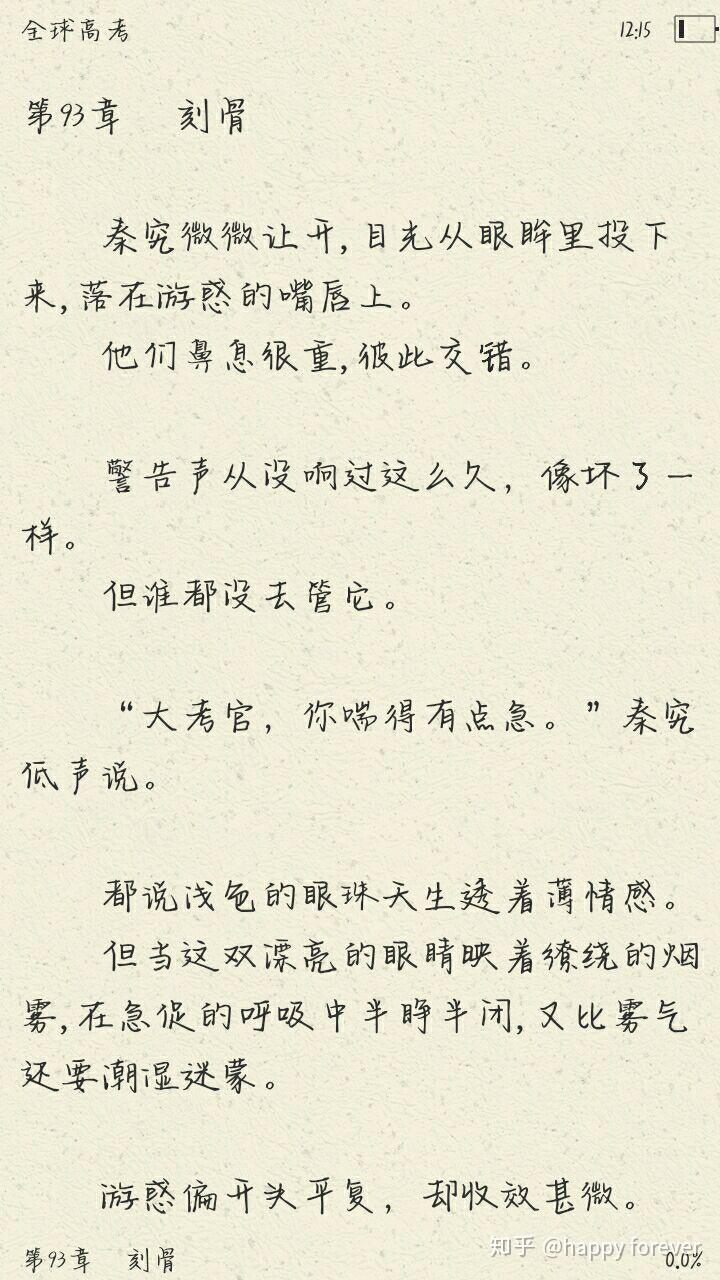 全球高考 12:15
第93章 刻骨
秦究微微让开,目光从眼眸里投下
来,落在游惑的嘴唇上。
他们鼻息很重,彼此交错。
警告声从没响过这么久，像坏了一
样。
但谁都没去管它。
“大考官，你喘得有点急。”秦究
低声说。
都说浅色的眼珠天生透着薄情感。
但当这双漂亮的眼睛映着缭绕的烟
雾,在急促的呼吸中半睁半闭,又比雾气
还要潮湿迷蒙。
游惑偏开头平复，却收效甚微。
知乎 @happy forever
第93章 刻骨 0.0%